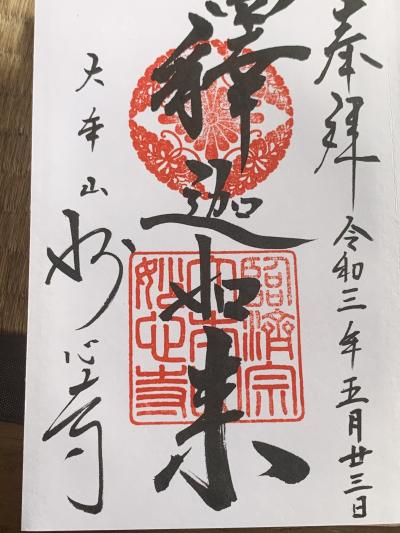 奉拝 令和三年五月廿三日
釋迦如来
大本山 妙心寺
臨濟宗
大本山
妙心寺